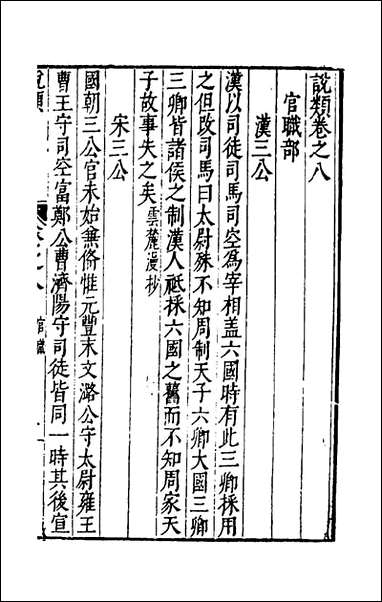 說類卷之八
官職部
漢三公
漢以司徒司馬司空爲宰相盖六國時有此三卿採用
之但改司馬曰太尉殊不知周制天子六卿大國三卿
三卿皆諸侯之制漢人祗採六國之舊而不知周家天
子故事失之矣雲麓漫抄
宋三公
國朝三公官未始無備惟元豐末文潞公守太尉雍王
曹王守司空富鄭公曹濟陽守司徒皆同一時其後宣
說類 卷之八 官職